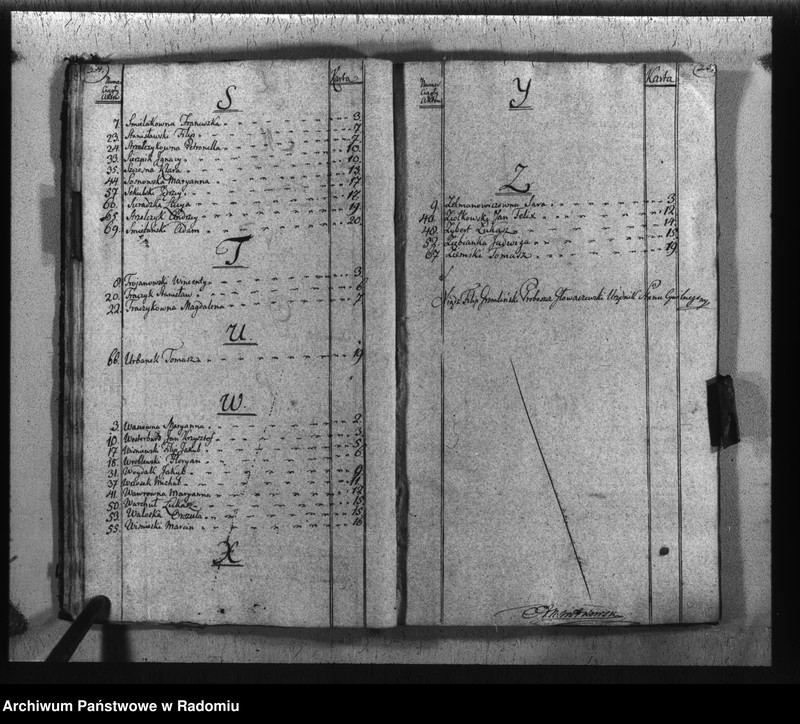 Karta
S
7. Smielakowna Franciszka 3
23. Stanisławski Filip 7
24. Strzelczykowna Petronella 7
33. Sierpik Ignacy 10
35. Szczęsna Klara 10
44. Sosnowska Maryanna 13
57. Sekulski Jerzy 17
60. Sieradzka Alicja 17
65. Strzelczyk Andrzey 19
69. Smietański Adam 20
T
8. Trojanowski Wincenty 3
20. Traczyk Stanisław 6
22. Traczykowna Magdalena 7
U
66. Urbanek Tomasz 19
W
3. Maryanna 2
10. Westerbild Jan Krzysztof 3
17. Wisniewski Filip Jakub 5
18. Wroblewski Floryan 6
31. Woydalt Jakub 9
37. Wdosek Michał 11
41. Wawrowna Maryanna 12
50. Warchuł Łukasz 15
53. Walaska Urszula 15
55. Wisnieski Marcin 16
X
Karta
Y
Z
9. Zelmanowiczowna Sara 3
40. Ziołkowski Jan Felix 12
48. Zybert Łukasz 14
52. Zięnianka Jadwiga 15
67. Ziemski Tomasz 19
Xiądz Filip Proboszcz Głowaczewski Urzędnik Stanu Cywilnego
Archiwum Państwowe w Radomiu